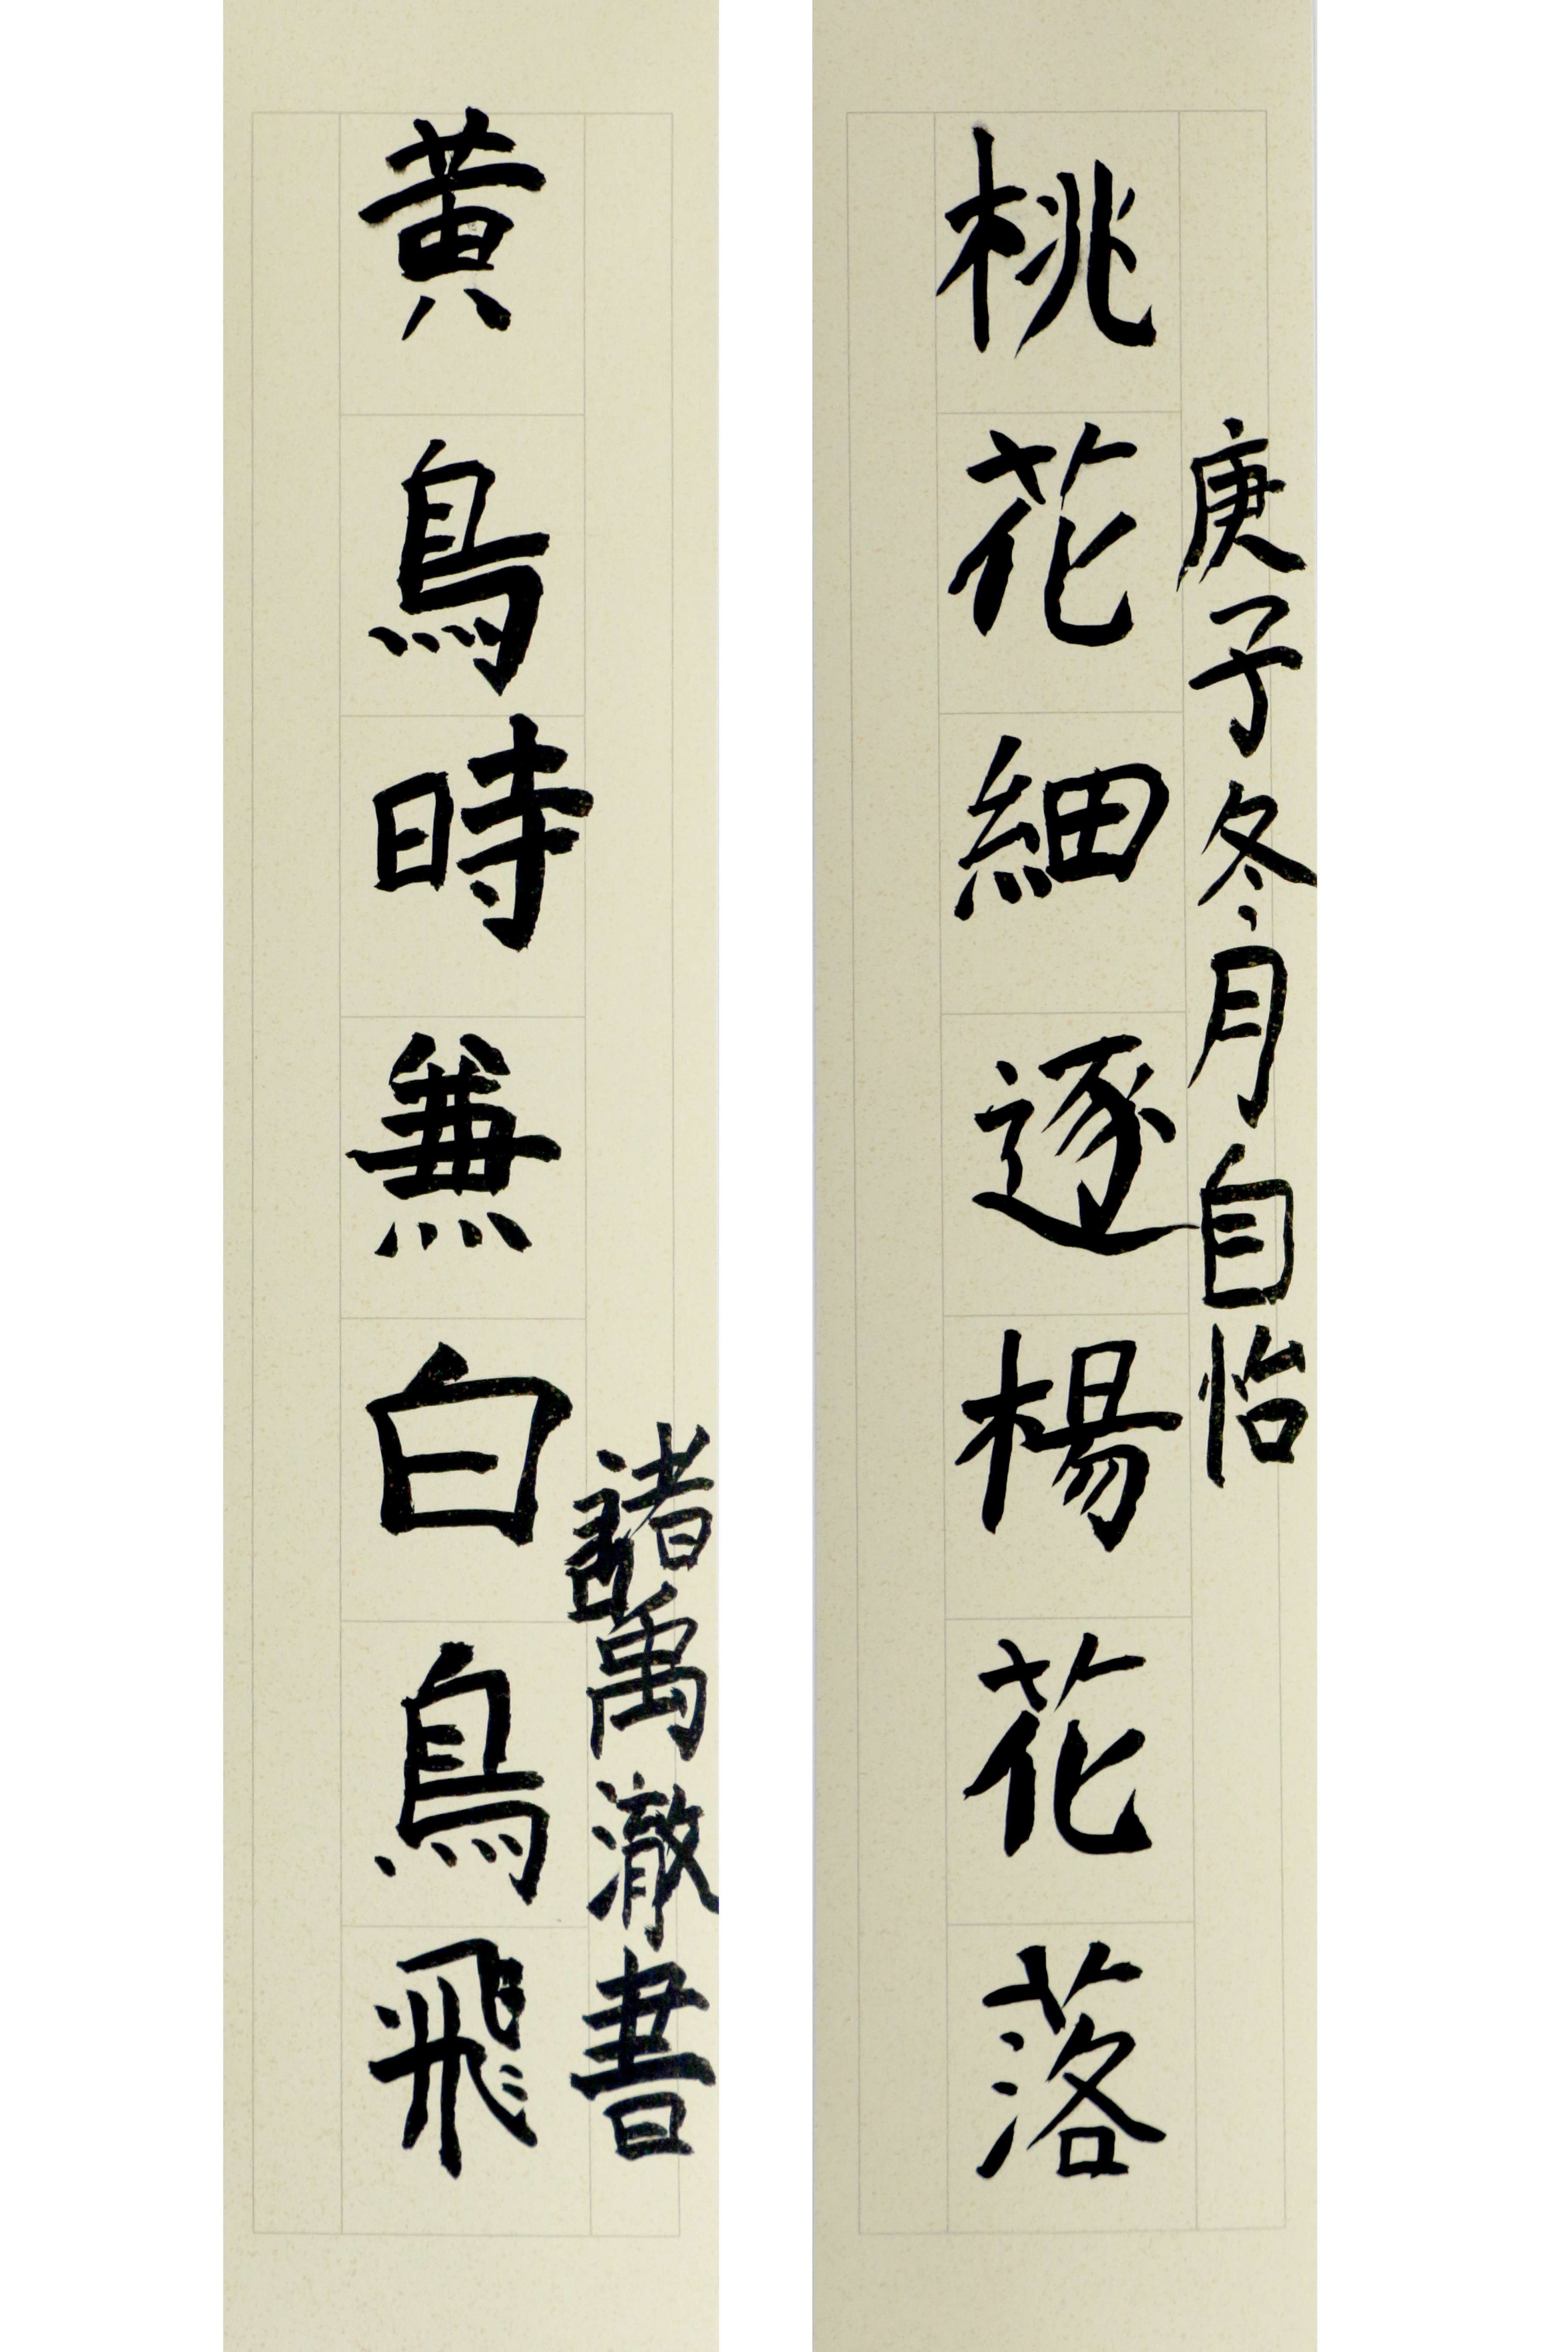 庚子冬月自怡
桃花細逐楊花落
黄鳥時兼白鳥飛
諸禹澈書